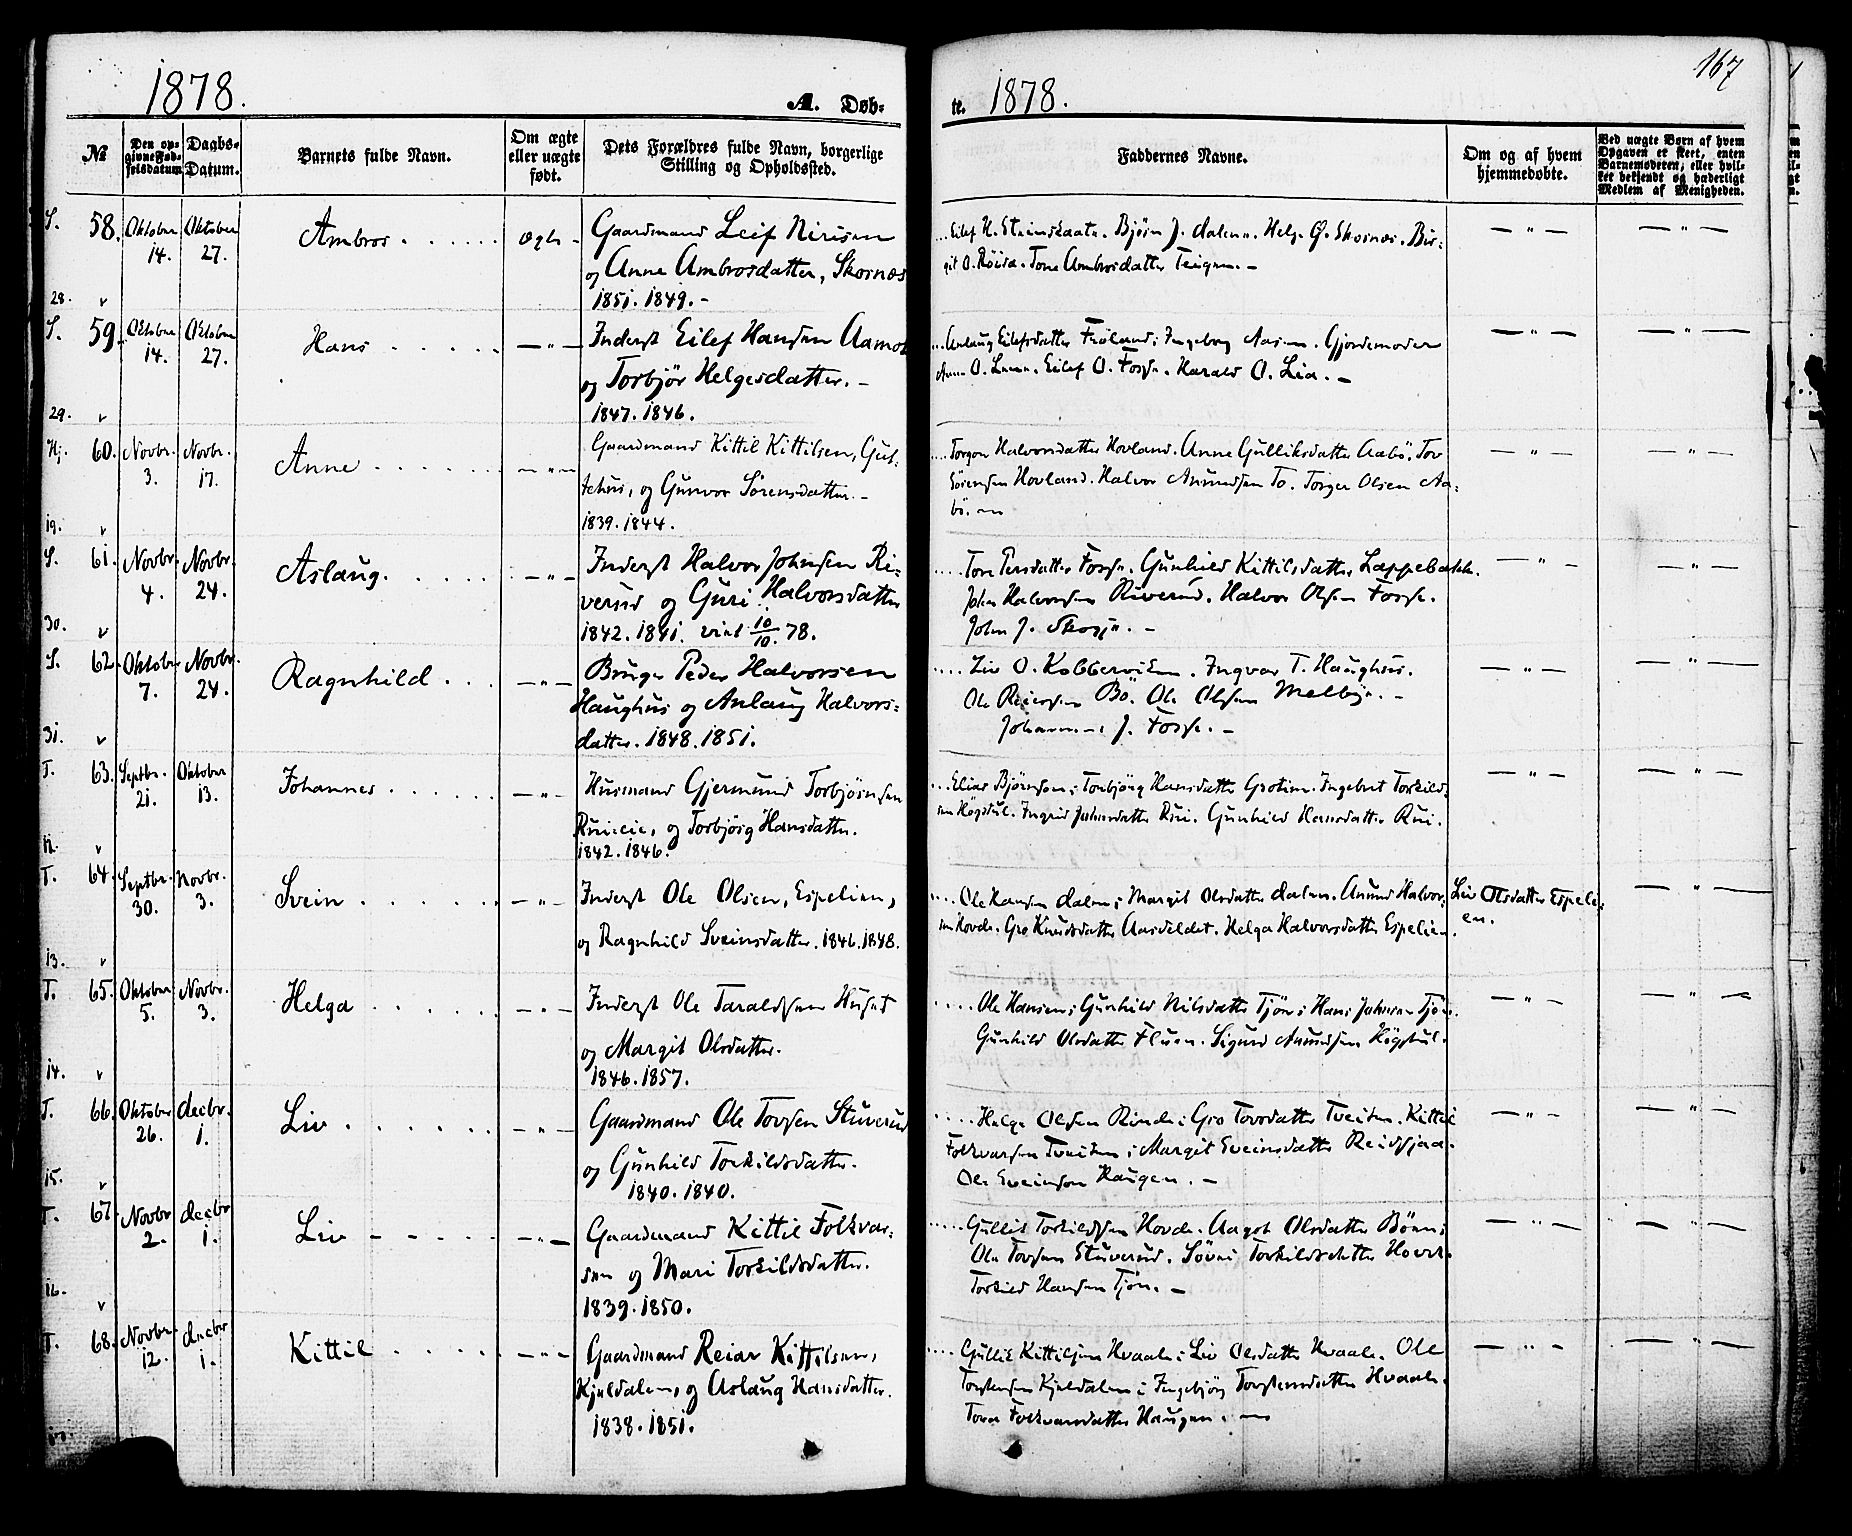 1878.
A. Døb-
te. 1878.
167
№
Den op-
givne Fød-
selsdatum
Daabs-
Datum.
Barnets fulde Navn.
Om ægte
eller uægte
født.
Dets Forældres fulde Navn, borgerlige
Stilling og Opholdssted.
Faddernes Navne.
Om og af hvem
hjemmedøbte.
Ved uægte Børn af hvem
Opgaven er skeet, enten
Barnemoderen, eller hvil-
ket bekjendt og hæderligt
Medlem af Menigheden.
S. 58. Oktober 14. Oktober 27. Ambros . . . . . . ægte -
Gaardmand Leif
og Anne Ambrosdatter, Skornæs
1851. 1849. -
28. v
Eilef H. Bjørn J. Dalen. Helge Skornæs. Bir-
git O. Tone Ambrosdatter Teigen. -
— " — — " —
S. 59. Oktober 14. Oktober 27. Hans . . . . . — " —
Inderst Eilef Hansen Aamot
og Torbjør Helgesdatter. -
1847. 1846.
29. v
Anlaug Eilefsdatter Ingeborg Aasen. Gjordemoder
O. Eilef O. Fosse. Harald O. Lia. -
— " — — " —
Hj. 60. Novbr. 3. Novbr. 17. Anne . . . . . . — " —
Gaardmand Kittil Kittilsen,
og Gunvor Sørensdatter. -
1839. 1844.
19. v
Halvorsdatter Hovland. Anne Gulliksdatter Aabö. Tov
Sörensen Hovland. Halvor Amundsen To. Torger Olsen Aa-
bö.
— " — — " —
S. 61. Novbr. 4. Novbr. 24. Aslaug. . . . . . — " —
Inderst Halvor Johnsen Ri-
verud og Guri Halvorsdatter
1842. 1841. viet 10/10. 78.
30. v
Tone Persdatter Fosse. Gunhild Kittilsdatter Lappebakk.
John Halvorsen Riverud. Halvor Olsen Fosse.
John J. -
— " — — " —
S. 62. Oktober 7. Novbr. 24. Ragnhild . . . — " —
Bruger Peder Halvorsen
Haughus og Anlaug Halvors-
datter. 1848. 1851.
31. v
Liv O. Kobbervik. Ingvar T. Haughus.
Ole Reiersen Bö. Ole Olsen Melbye. -
J. Fosse. -
— " — — " —
T. 63. Septbr. 21. Oktober 13. Johannes . . . . . . — " —
Husmand Gjermund Torbjørnsen
Ruilie, og Torbjørg Hansdatter.
1842. 1846.
12. v
Elias Bjørnsen; Torbjörg Hansdatter Grotim. Ingebret Torkild-
sen Högstul. Ingrid Johnsdatter Rui. Gunhild Hansdatter Rui.
— " — — " —
T. 64. Septbr. 30. Novbr. 3. Svein . . . . . . . — " —
Inderst Ole Olsen, Espelien,
og Ragnhild Sveinsdatter. 1846. 1848.
13. v
Ole Hansen Dalen; Margit Olsdatter Dalen. Amund Halvor-
sen Hovde. Gro Knudsdatter Helga Halvorsdatter Espelien.
Liv Olsdatter Espeli-
en.
— " —
T. 65. Oktober 5. Novbr. 3. Helga . . . . . . — " —
Inderst Ole Taraldsen
og Margit Olsdatter.
1846. 1857.
14. v
Ole Hansen; Gunhild Nilsdatter Tjön; Hans Johnsen Tjön.
Gunhild Olsdatter Sigurd Amundsen Högstul.
— " — — " —
T. 66. Oktober 26. Decbr. 1. Liv . . . . . . . — " —
Gaardmand Ole Tovsen Stuverud
og Gunhild Torkildsdatter.
1840. 1840.
15. v
Helge Olsen Rinde; Gro Tovsdatter Tveiten. Kittil
Folkvarsen Tveiten; Margit Sveinsdatter
Ole Sveinsen Haugen. -
— " — — " —
T. 67. Novbr 2. Decbr 1. Liv - - - - - — " —
Gaardmand Kittil Folkvar-
sen og Mari Torkildsdatter.
1839. 1850.
16. v
Gullik Torkildsen Hovde. Aagot Olsdatter Bönn;
Ole Tovsen Stuverud. Torkildsdatter Hovde.
Torkild Hansen Tjön. -
— " — — " —
T. 68. Novbr. 12. Decbr 1. Kittil . . . . . — " —
Gaardmand Reiar Kittilsen,
Kjuldalen, og Aslaug Hansdatter.
1838. 1851.
17.
Gullik Kittilsen Hvaale; Liv Olsdatter Hvaale. Ole
Torstensen Kjuldalen; Ingebjörg Torstensdatter Hvaale.
Tone Folkvarsdatter Haugen.
— " — — " —